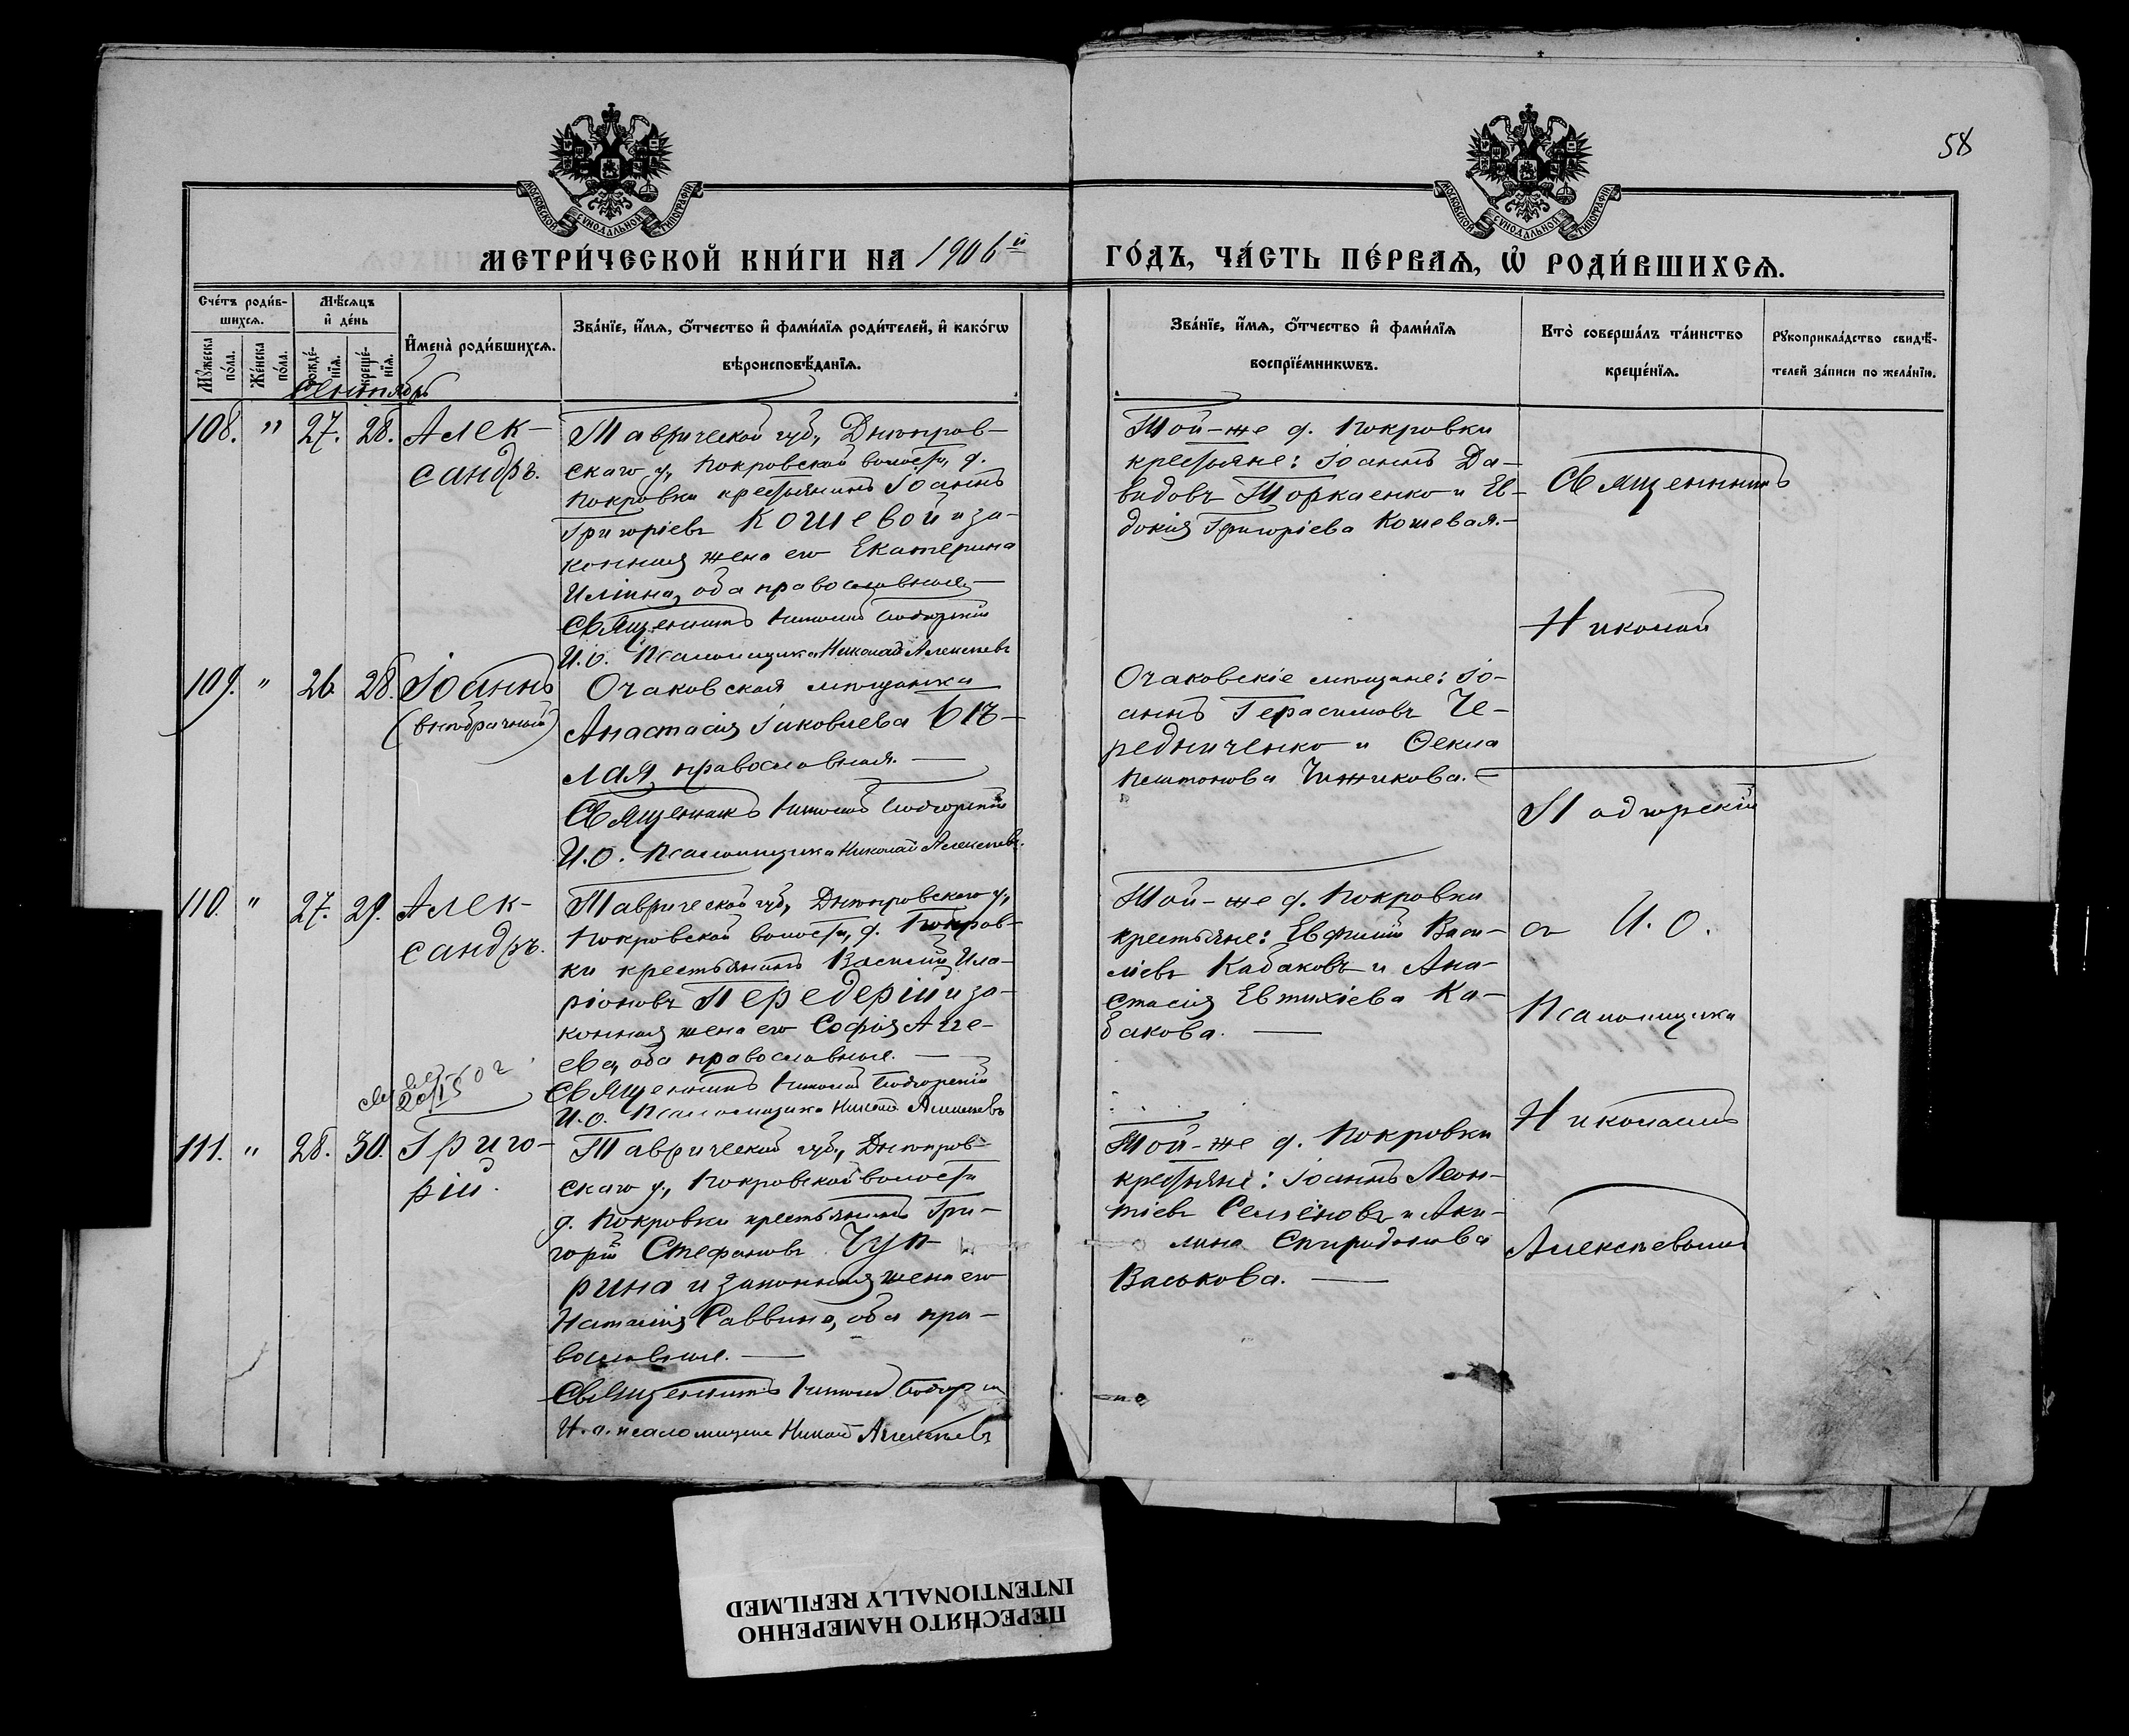 58
МОСКОВСКОЙ СѴНОДАЛЬНОЙ ТИПОГРАФІИ
МОСКОВСКОЙ СѴНОДАЛЬНОЙ ТИПОГРАФІИ
МЕТРИ́ЧЕСКОЙ КНИ́ГИ НА 1906й
ГО́ДЪ, ЧА́СТЬ ПЕ́РВАѦ, Ѡ҆ РОДИ́ВШИХСѦ.
Сче́тъ роди́в-
шихсѧ.
Мꙋ́жеска по́ла.
Же́нска по́ла.
Мѣ́сѧцъ
и҆ де́нь
рожде́-нїѧ.
креще́-нїѧ.
И҆мена̀ роди́вшихсѧ.
Зва́нїе, и҆́мѧ, ѻ҆́тчество и҆ фами́лїѧ роди́телей, и҆ како́гѡ
вѣроисповѣ́данїѧ.
Зва́нїе, и҆́мѧ, ѻ҆́тчество и҆ фами́лїѧ
воспрїе́мникѡвъ.
Кто̀ соверша́лъ та́инство
креще́нїѧ.
Рꙋкоприкла́дство свидѣ́-
телей за́писи по жела́нїю.
Сентябрь
108. " 27. 28. Алек-
сандръ.
Таврической губ., Днѣпров-
скаго у., Покровской волости, д.
Покровки крестьянинъ Іоаннъ
Григоріевъ Кошевой и за-
конная жена его Екатерина
Иліина, оба православные.
Священникъ Николай Подгорскій
И.о. Псаломщика Николай Алексѣевъ
Той-же д. Покровки
крестьяне: Іоаннъ Да-
видовъ Торкаенко и Ев-
докія Григоріева Кошевая.-
109. " 26. 28. Іоаннъ
(внѣбрачный)
Очаковская мѣщанка
Анастасія Іаковлева Бѣ-
лая, православная.
Священникъ Николай Подгорскій
И.О. Псаломщика Николай Алексѣевъ.
Очаковскіе мѣщане: Іо-
аннъ Герасимовъ Че-
редниченко и Ѳекла
Чижикова.
110. " 27. 29. Алек-
сандръ.
Таврической губ., Днѣпровскаго у.,
Покровской волости, д. Покров-
ки крестьянинъ Василій Ила-
ріоновъ Передерій и за-
конная жена его Софія Агге-
ева, оба православные.
Священникъ Николай Подгорскій
И.о. Псаломщика Николай Алексѣевъ
Той-же д. Покровки
крестьяне: Евфимій Васи-
ліевъ Кабаковъ и Ана-
стасія Евтихіева Ка-
бакова.
111. " 28. 30. Григо-
рій.
Таврической губ., Днѣпров-
скаго у., Покровской волости
д. Покровки крестьянинъ Гри-
горій Стефановъ Чуп-
рина и законная жена его
Наталія Саввина, оба пра-
вославные.
Священникъ Николай
И.о. псаломщика Николай Алексѣевъ
Той-же д. Покровки
крестьяне: Іоаннъ Леон-
тіевъ Семёновъ и Аки-
лина Спиридонова
Васькова.
Священникъ
Николай
Подгорскій
съ И.О.
Псаломщика
Николаемъ
Алексѣевымъ
ПЕРЕСНЯТО НАМЕРЕННО
INTENTIONALLY REFILMED